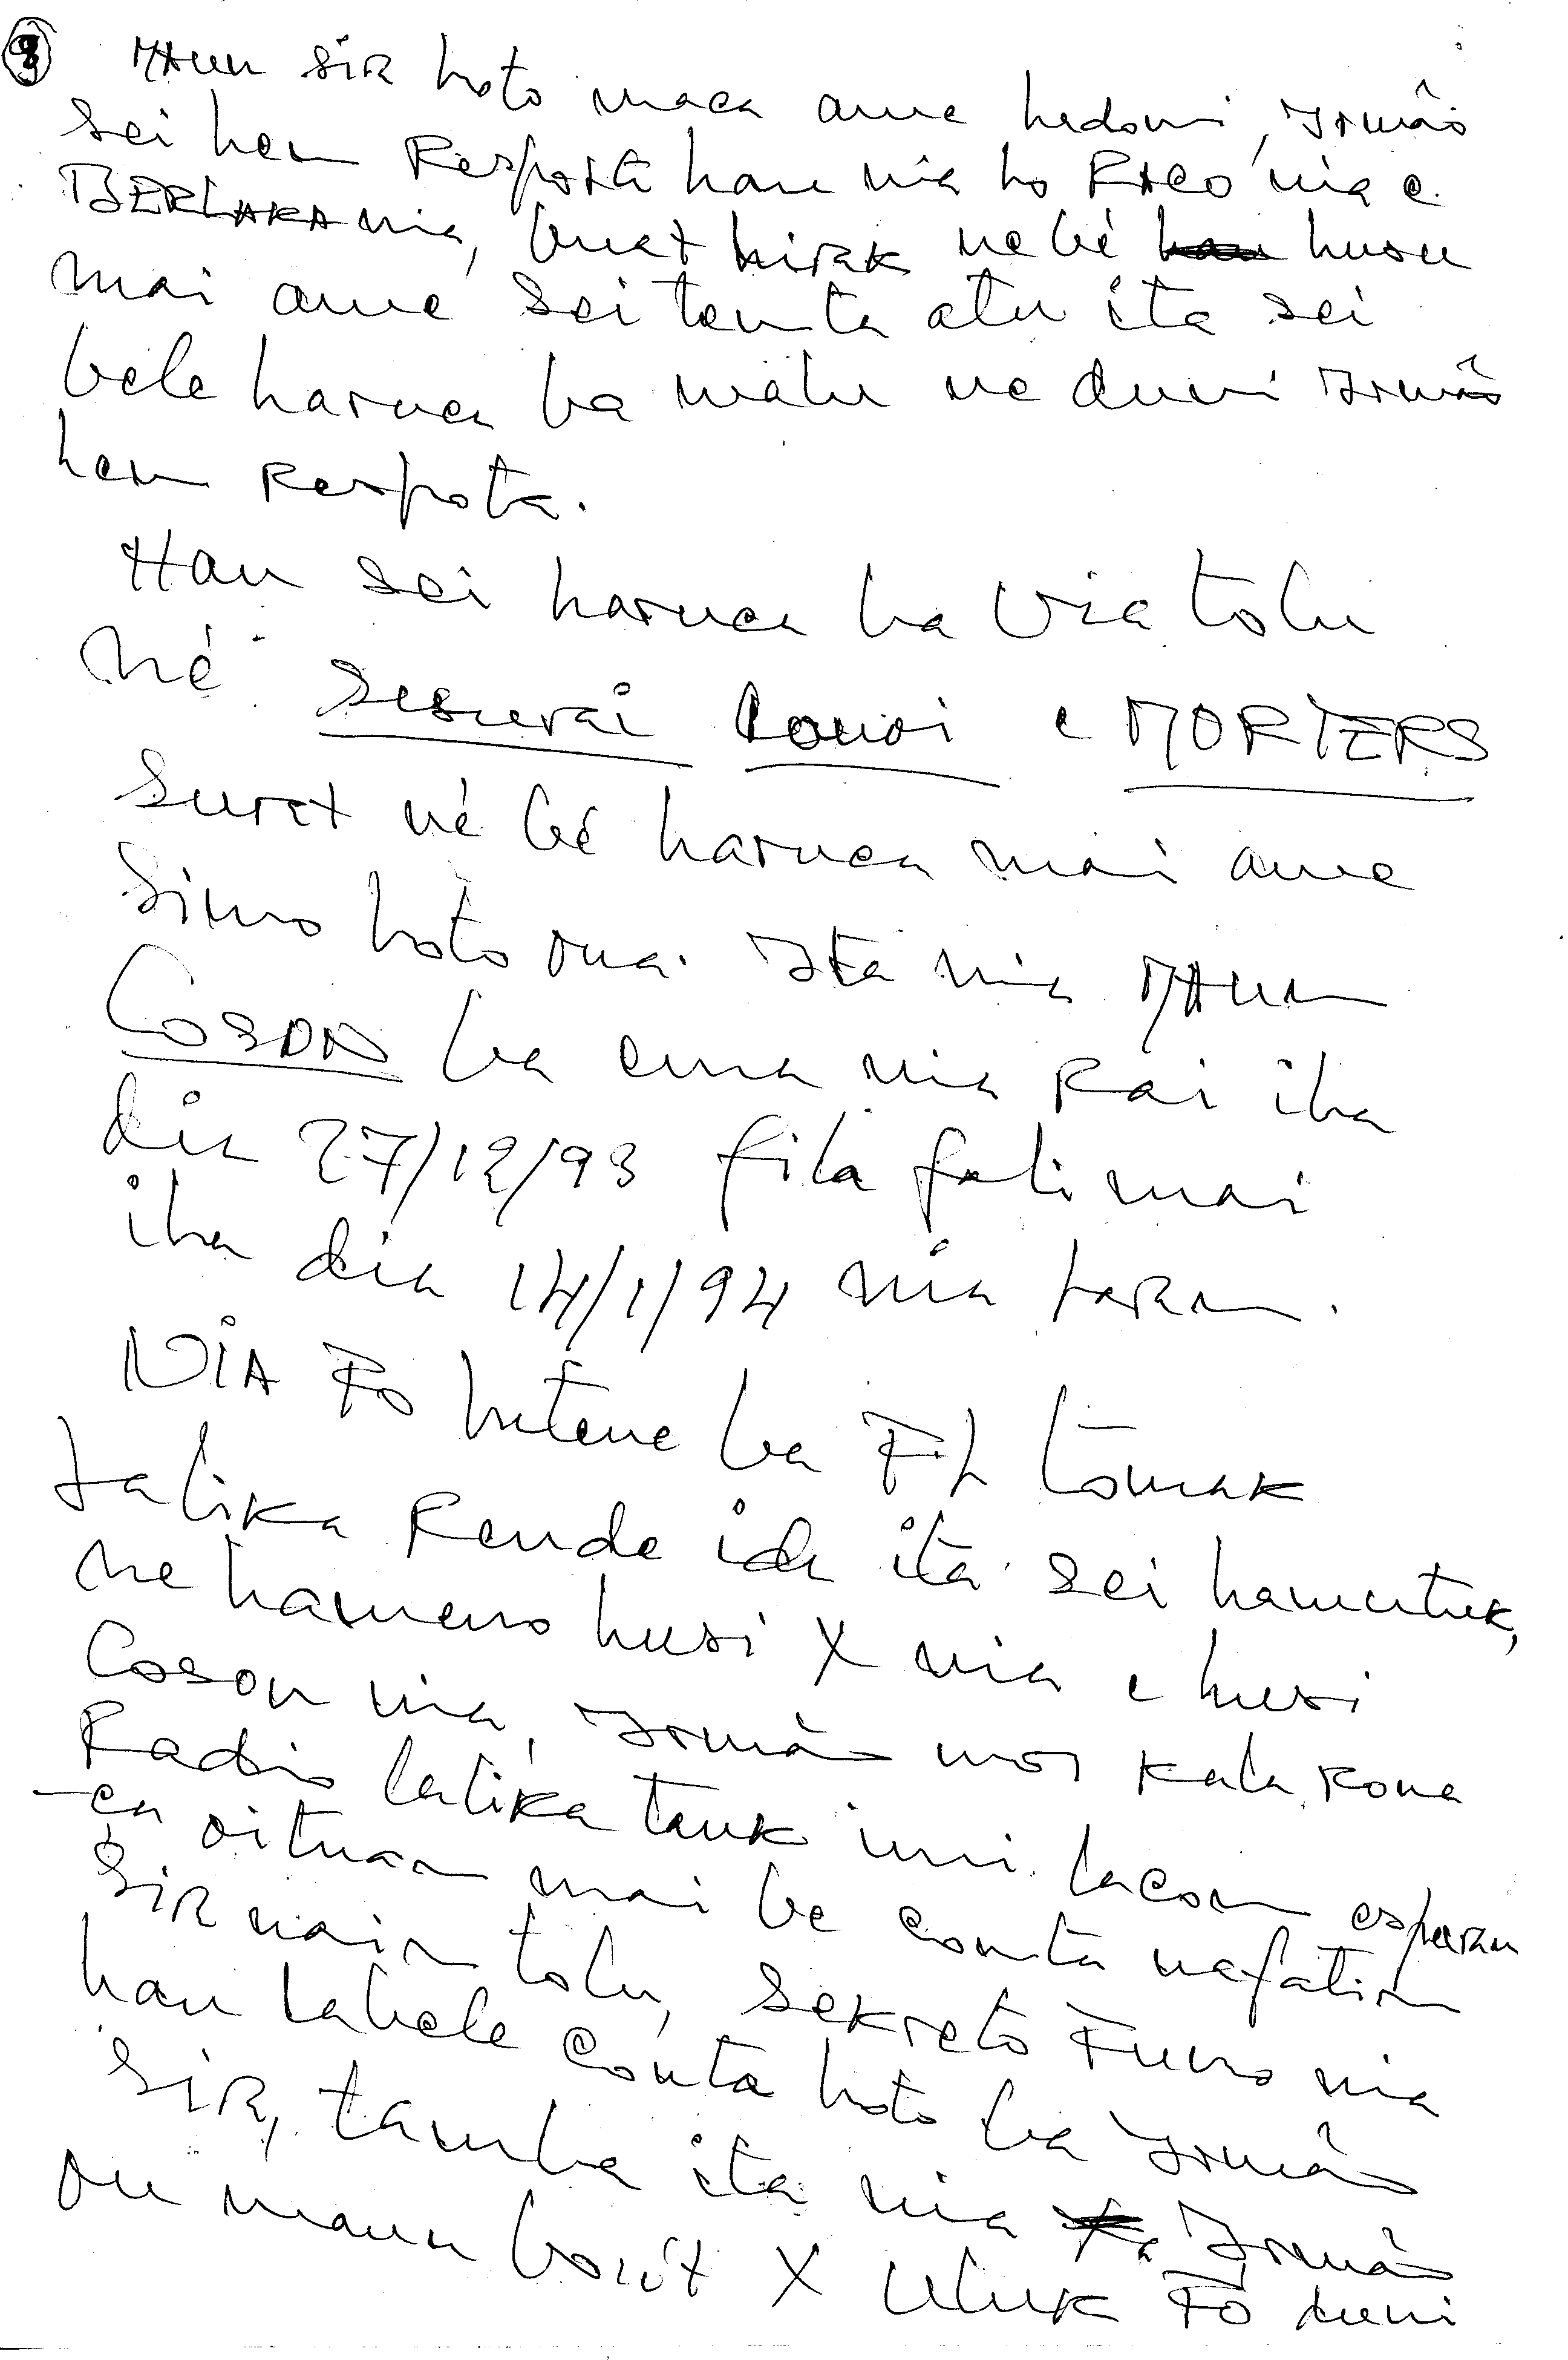 MAUN SIR hoto maca ame hadomi, Irmão
sei hein Resposta hau nia ho RACO nia e
BERLAKA nia, buat hirak nebé husu
mai ame sei tenta atu ita sei
bele haruca ba malu ne duni Irmão
hein Resposta.
Hau sei haruca ba Via tolu
Né sesurai Lonoi e MORTERS
Surat né bé haruca mai ame
simo hoto ona. Ita nia MAUN
COSON ba ema nia Rai iha
dia 27/12/93 fila fali mai
iha dia 14/1/94 nia
NIA FO hatene ba F.L tomak
Labika Rende ida ita sei hamutuk,
ne hameno husi X nia e husi
Coson nia, Irmão mos kala rona
Radio lalika tauk imi lacon esperan
-ca oituan mai be conta nafatin
SIR nain tolu, sekreto Funo nia
hau labele conta hoto ba Irmão
SIR, tamba ita nia Irmão
ou maun boot X uluk FO duni